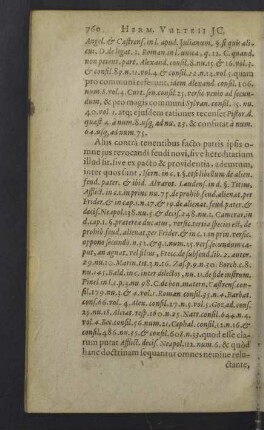 760 HERM. VULTEII JC.
Angel. & Castrens. in l. apud Julianum, §. si quis aliƐ
enu. D. de legat. 1. Roman. in d. unica, q. 12. C. quand.
non petent. part. Alexand. consil. 8. nu. 15. vol.
& consil. 89. n. 11. vol. 4 & consil. 22. n. 25. vol. 5 quam
pro communi referunt, idem Alexand. consil. 106.
num. 8. vol. 4. Curt. sen. consil. 25. versic. venio ad secun-
dum, & pro magis communi Sylvan. consil. 15. nu.
40. vol. 1. atq; ejusdem rationes recenset Pistor. d.
quæst. 4. à num. 8. usq; ad nu. 23. & confutat à num.
64. usq; ad num. 75.
Alus contrà tenentibus facto patris ipsis o-
mne jus revocandi feudi novi, sive hereditarium
illud sit, sive ex pacto & providentia, adeumtum,
inter quos sunt. Isern. in c. 1. §. et si libellum de alien.
feud. pater. & ibid. Alvarot. Landens. in d. §. Titius,
Afflict. in c. 1. in prin. nu. 57. de prohib. feud. alienat. per
Frider. & in cap. 1. n. 17. & 19. de alienat. feud. pater. &
decis. Neapol. 158. nu. 5. & decis. 248. nu. 1. Camerar. in
d. cap. 1. §. præterea ducatus, versic. tertia species est, de
prohib. feud. alienat. per Frider. & in c. 1. in prin. versic.
oppono secundò.
put, an agnat. vel filius, Frec. de subfeud. lib. 2. auter.
49. nu. 10. Marin. tit. 3. n. 16. Zas. p. 9. n. 50. Bursh. c. 8.
nu. 145. Bald. in c. inter dilectos, nu. 11. de fide instrum.
Pinel. in l. 1. p. 3. nu. 98. C. de bon. matern. Castrens. con-
sil. 179. nu. 3. & 4. vol. 1. Roman consil. 35. n. 4. Barbat.
consil. 66. vol. 4. Alex. consil. 27. n. 5. vol. 5. Gut. ad. consf.
25. nu. 18. Alciat. resp. 160. n. 25. Natt. consil. 644. n. 4.
vol. 4. Bec. consil. 56. num. 21. Cephal. consil. 12. n. 16. &
consil. 486. nu. 55. & consil. 601. n. 33. quod esse cla-
rum putat Afflict. decis. Neapol. 112. num. 6. & quòd
hanc doctrinam sequantur omnes nemine relu-
ctante,